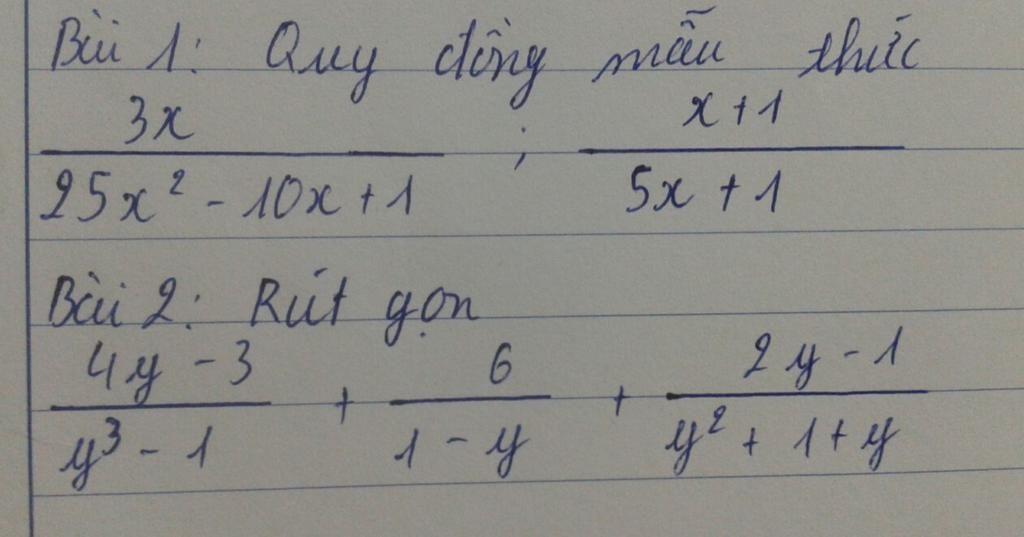 Bài 1: Quy đồng mẫu thức
3x / 25x² - 10x + 1 ; x + 1 / 5x + 1
Bài 2: Rút gọn
4y - 3 / y³ - 1 + 6 / 1 - y + 2y - 1 / y² + 1 + y